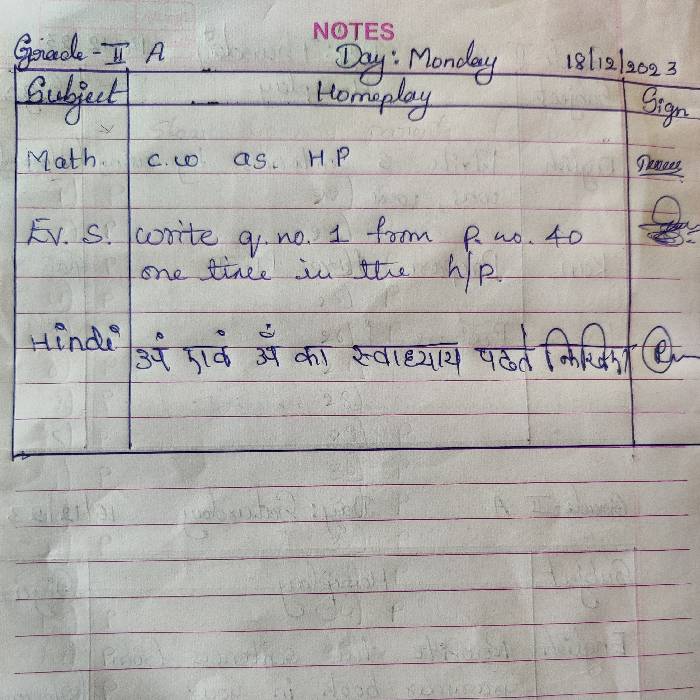 NOTES
Grade - II A Day: Monday 18/12/2023
Subject Homeplay Sign
Math c.w as. H.P
Ev. S. write q. no. 1 from p. no. 40
one time in the h/p.
Hindi अं एवं अँ का स्वाध्याय पढ़ते